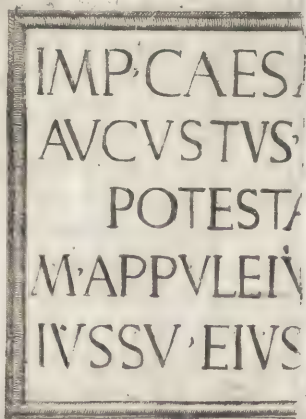 IMP·CAESA
AVCVSTVS·
POTESTA
M·APPVLEIV
IVSSV·EIVS